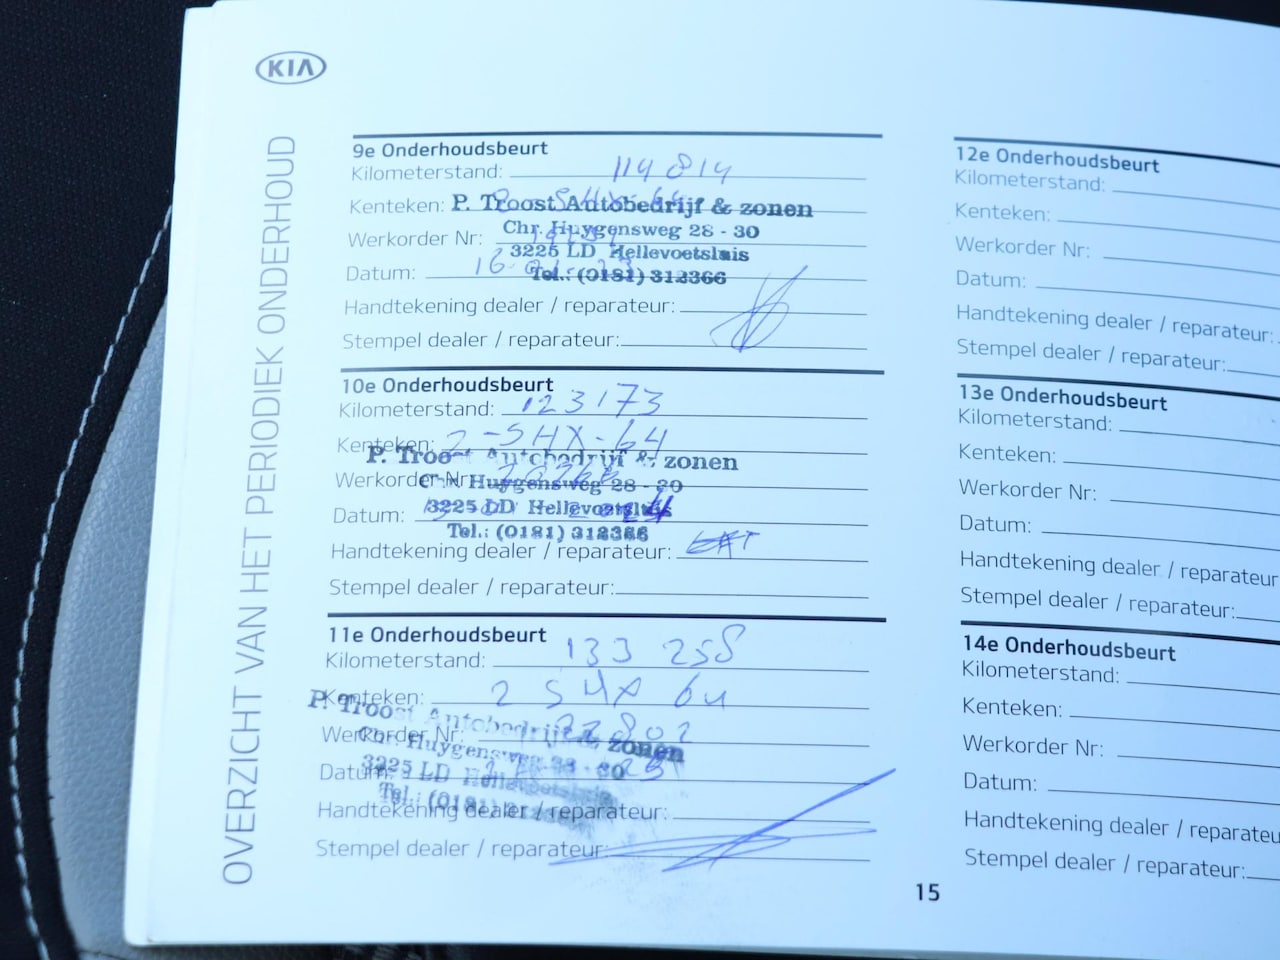 KIA
OVERZICHT VAN HET PERIODIEK ONDERHOUD
9e Onderhoudsbeurt
Kilometerstand: 114 814
Kenteken:
P. Troost Autobedrijf & zonen
Chr. Huygensweg 28 - 30
Werkorder Nr:
3225 LD Hellevoetsluis
Datum: 16
Tel.: (0181) 312366
Handtekening dealer / reparateur:
Stempel dealer / reparateur:
10e Onderhoudsbeurt
Kilometerstand: 123173
Kenteken: 2-SHX-64
P. Troost Autobedrijf & zonen
Werkorder Nr:
Chr. Huygensweg 28 - 30
3225 LD Hellevoetsluis
Datum:
Tel.: (0181) 312366
Handtekening dealer / reparateur:
Stempel dealer / reparateur:
11e Onderhoudsbeurt
Kilometerstand: 133 258
Kenteken: 2 SHX 64
P. Troost Autobedrijf & zonen
Werkorder Nr: 22802
Chr. Huygensweg 28 - 30
Datum:
3225 LD Hellevoetsluis
Tel.: (0181)
Handtekening dealer / reparateur:
Stempel dealer / reparateur:
12e Onderhoudsbeurt
Kilometerstand:
Kenteken:
Werkorder Nr:
Datum:
Handtekening dealer / reparateur:
Stempel dealer / reparateur:
13e Onderhoudsbeurt
Kilometerstand:
Kenteken:
Werkorder Nr:
Datum:
Handtekening dealer / reparateur
Stempel dealer / reparateur:
14e Onderhoudsbeurt
Kilometerstand:
Kenteken:
Werkorder Nr:
Datum:
Handtekening dealer / reparateu
Stempel dealer / reparateur:
15